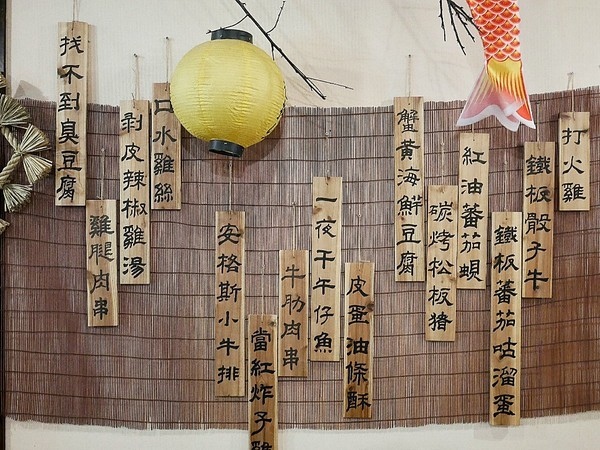 找不到臭豆腐
雞腿肉串
剥皮辣椒雞湯
口水雞絲
安格斯小牛排
當紅炸子雞
牛肋肉串
一夜干午仔魚
皮蛋油條酥
蟹黃海鮮豆腐
碳烤松板豬
紅油蕃茄蜆
鐵板蕃茄咕溜蛋
鐵板骰子牛
打火雞